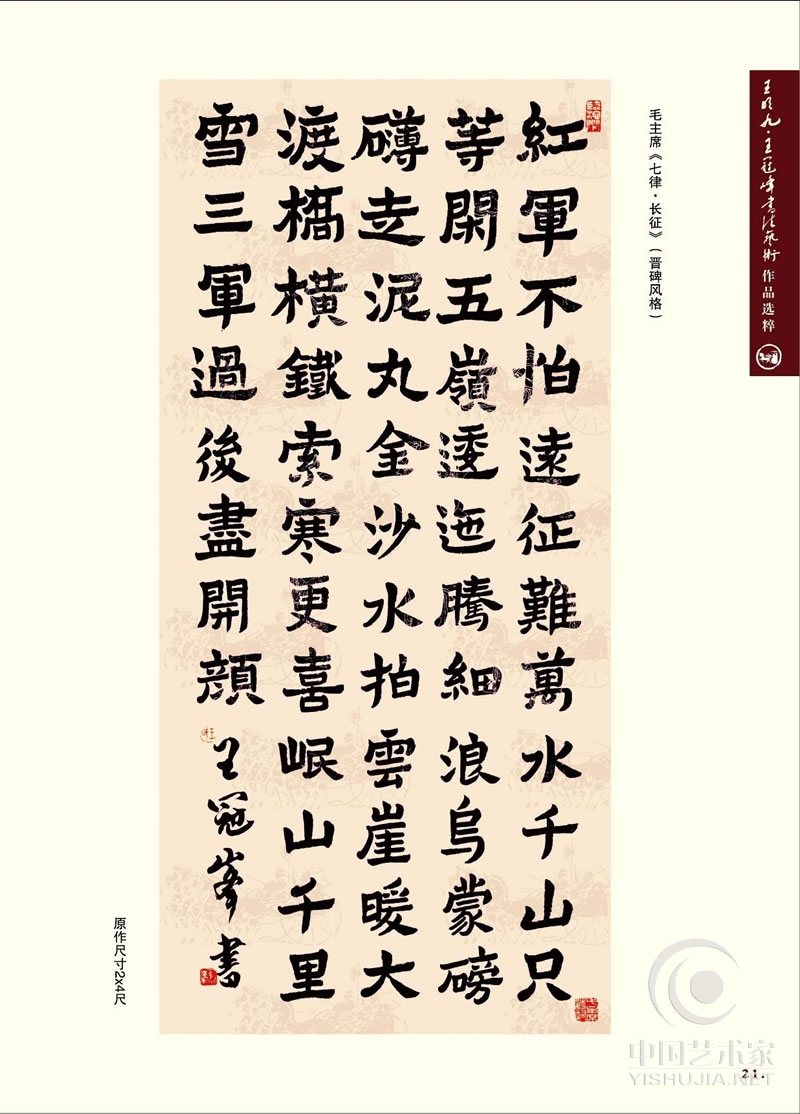 王明九·王冠峰書法藝術 作品选粹
毛主席《七律·长征》（晋碑风格）
紅軍不怕遠征難萬水千山只
等閑五嶺逶迤騰細浪烏蒙磅
礴走泥丸金沙水拍雲崖暖大
渡橋橫鐵索寒更喜岷山千里
雪三軍過後盡開顔
王冠峯書
原作尺寸2x4尺
中国艺术家
YISHUJIA.NET
21.